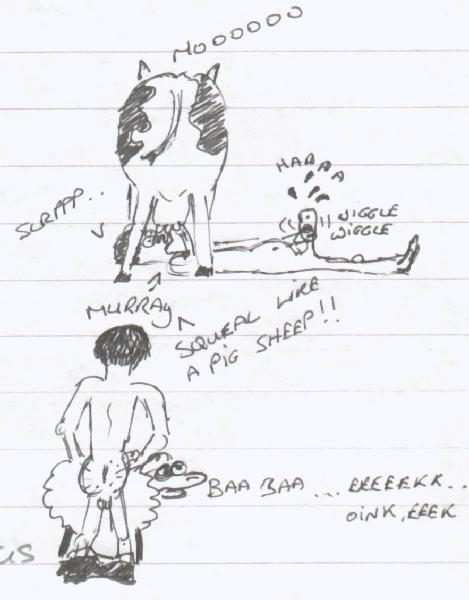 MOOOOOO
HAAAA
SCRAPP..
WIGGLE
WIGGLE
MURRAY
SQUEAL LIKE
A PIG SHEEP!!
BAA BAA ... EEEEEKK..
OINK, EEEK